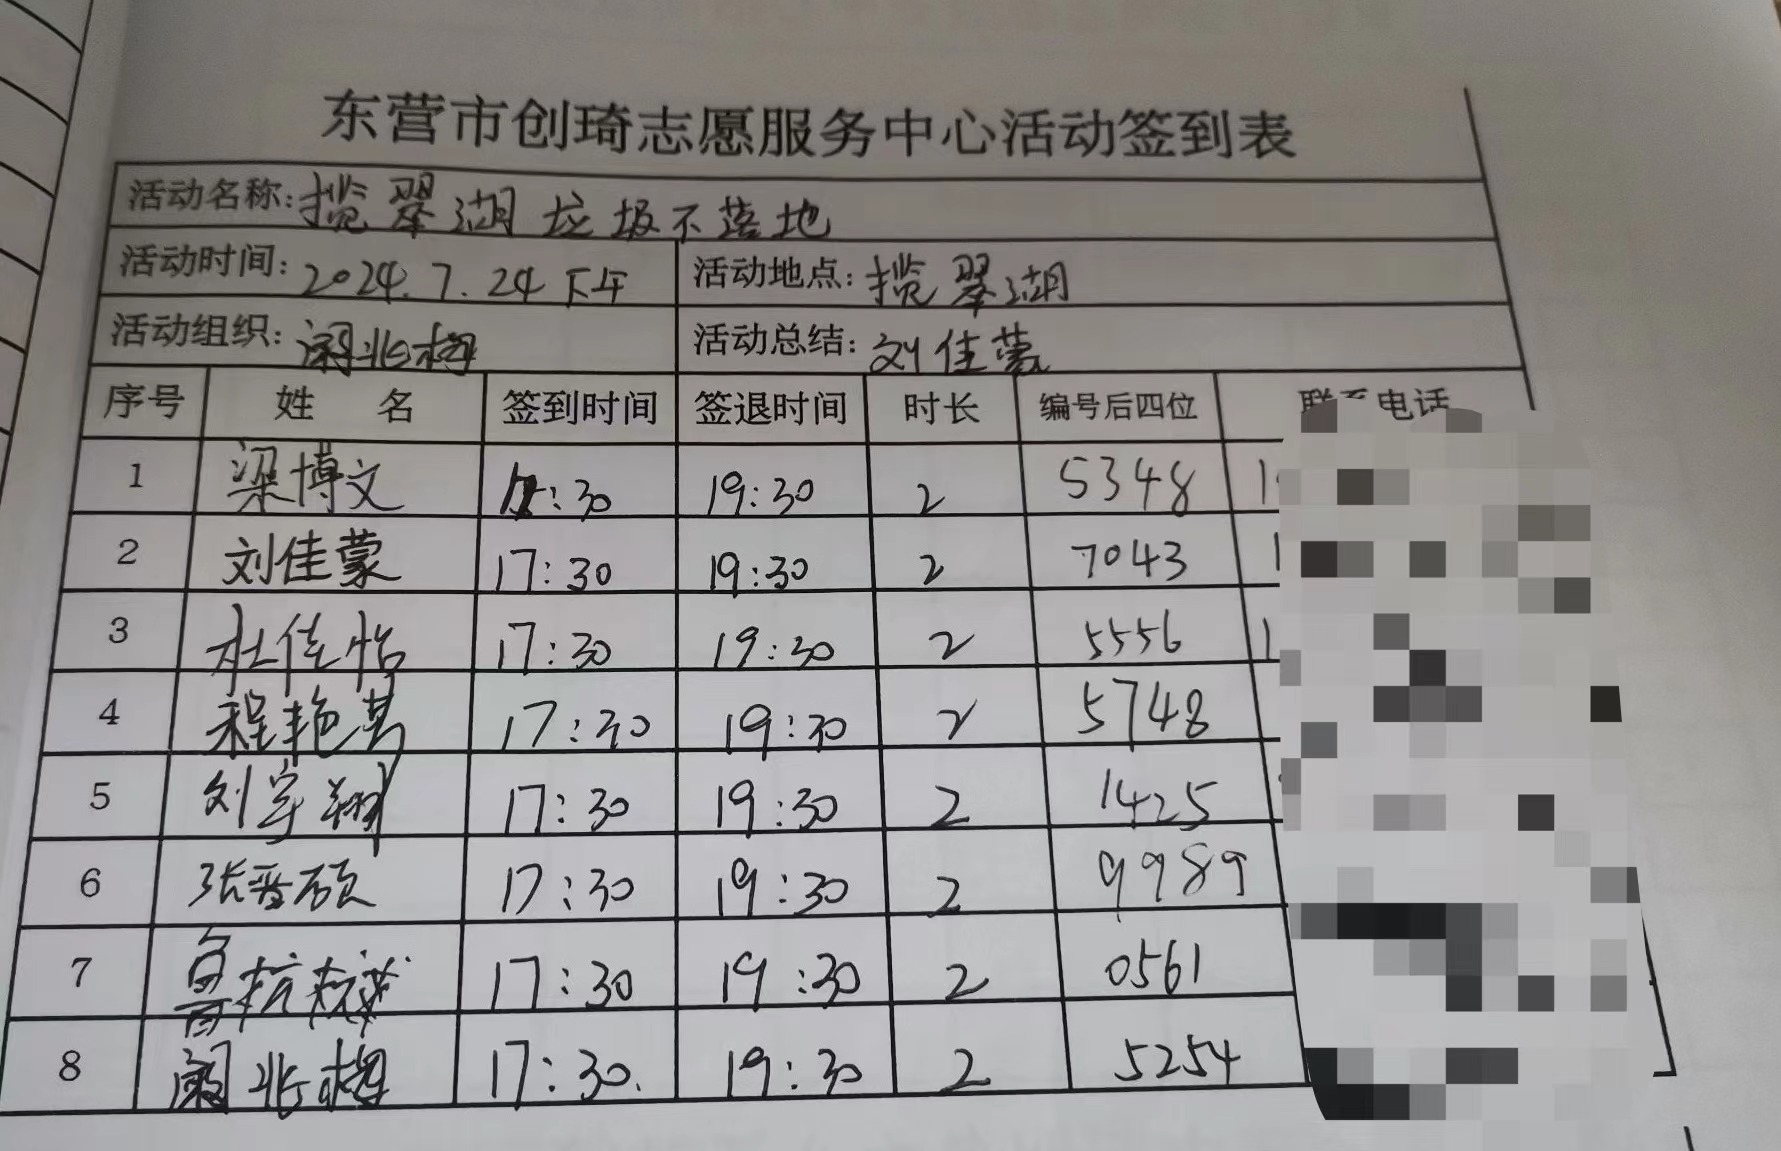 东营市创琦志愿服务中心活动签到表
活动名称：揽翠湖垃圾不落地
活动时间：2024.7.24下午 活动地点：揽翠湖
活动组织：阚兆梅 活动总结：刘佳蒙
序号 姓 名 签到时间 签退时间 时长 编号后四位 联系电话
1 梁博文 :30 19:30 2 5348
2 刘佳蒙 17:30 19:30 2 7043
3 杜佳怡 17:30 19:30 2 5556
4 程艳 17:30 19:30 2 5748
5 刘宇翔 17:30 19:30 2 1425
6 张晋硕 17:30 19:30 2 9989
7 鲁 17:30 19:30 2 0561
8 阚兆梅 17:30. 19:30 2 5254